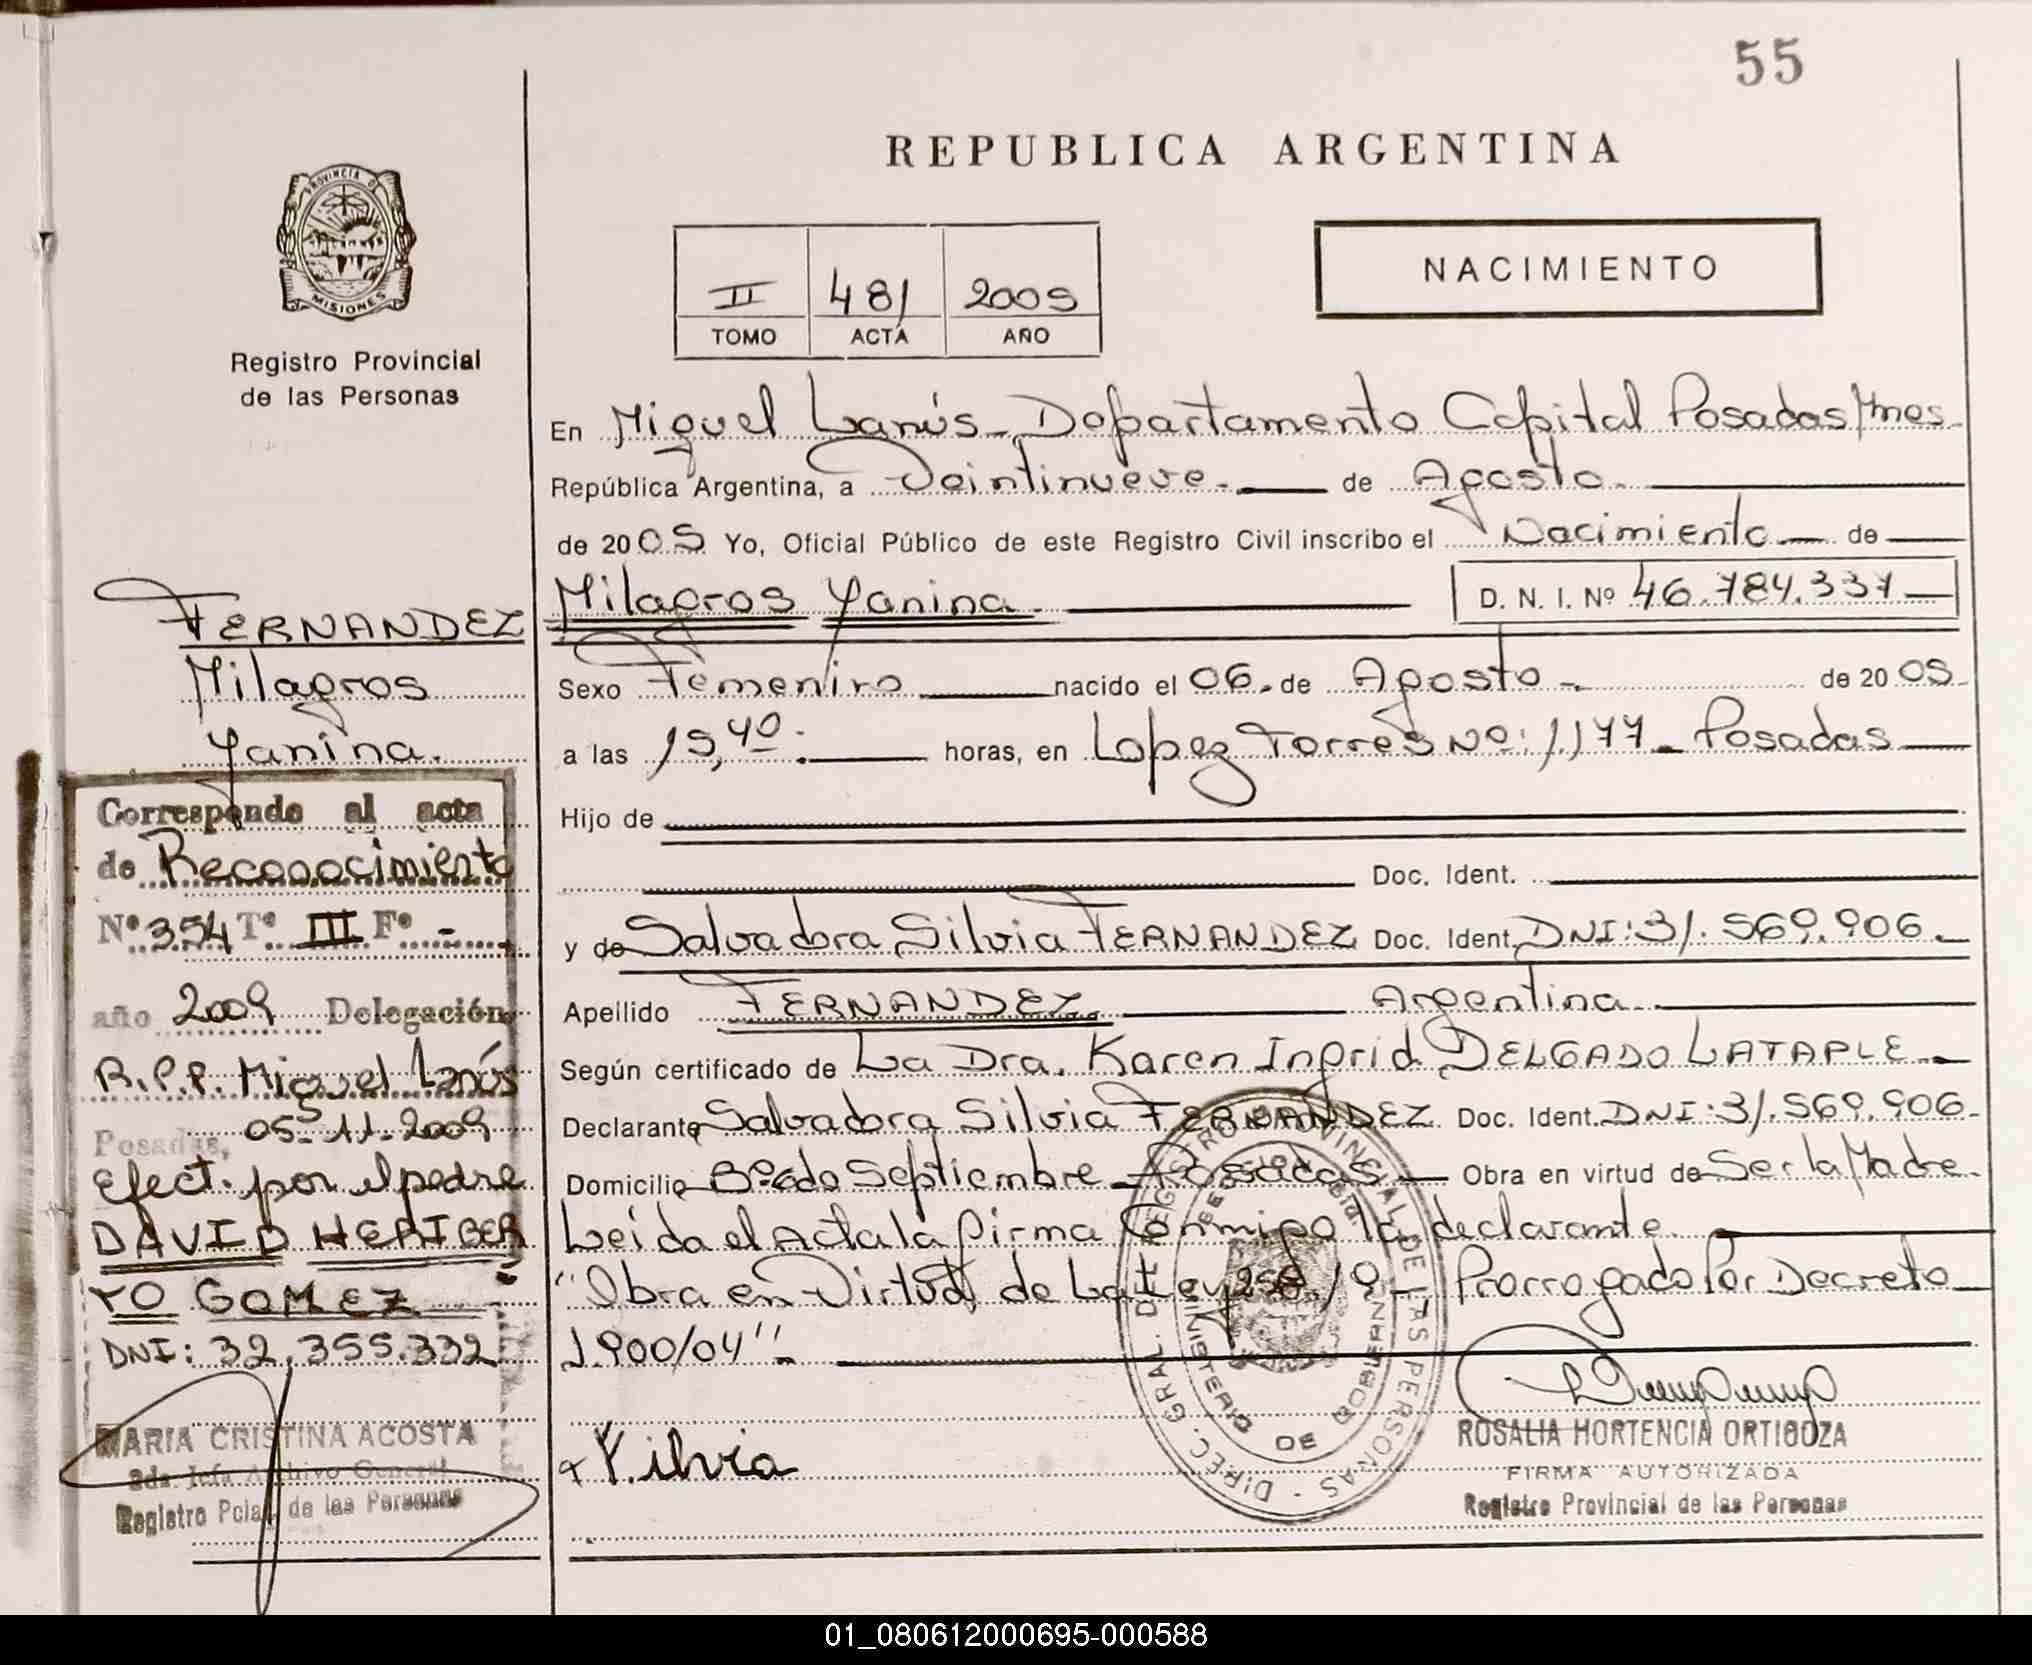 55
REPUBLICA ARGENTINA
PROVINCIA DE
MISIONES
Registro Provincial
de las Personas
II 481 2005
TOMO ACTA AÑO
NACIMIENTO
En Miguel Lanús - Departamento Capital Posadas Mnes -
República Argentina, a Veintinueve. - de Agosto. -
de 2005 Yo, Oficial Público de este Registro Civil inscribo el Nacimiento - de
Milagros Yanina. D. N. I. Nº 46.784.337 -
Sexo Femenino nacido el 06. de Agosto - de 2005 -
a las 15,40. - horas, en Lopez Torres Nº: 1.177 - Posadas
Hijo de
Doc. Ident.
y de Salvadora Silvia FERNANDEZ Doc. Ident. DNI: 31.569.906. -
Apellido FERNANDEZ. Argentina. -
Según certificado de La Dra. Karen Ingrid DELGADO LATAPLE -
Declarante Salvadora Silvia FERNANDEZ Doc. Ident. DNI: 31.569.906 -
Domicilio Bº de Septiembre - Posadas - Obra en virtud de Ser la Madre.
Leída el Acta la firma Conmigo la declarante.
"Obra en Virtud de La Ley - Prorrogado Por Decreto
1.900/04" -
Silvia
ROSALIA HORTENCIA ORTIGOZA
FIRMA AUTORIZADA
Registro Provincial de las Personas
DIREC. GRAL. DEL REGISTRO PROVINCIAL DE LAS PERSONAS
MINISTERIO DE GOBIERNO
FERNANDEZ
Milagros
Yanina.
Corresponde al acta
de Reconocimiento
Nº 354 Tº III Fº -
año 2009 Delegación
R.P.P. Miguel Lanús
Posadas, 05-11-2009
Efect. por el padre
DAVID HERIBER
TO GOMEZ
DNI: 32.355.332
MARIA CRISTINA ACOSTA
Archivo General
Registro Pcial. de las Personas
01_080612000695-000588